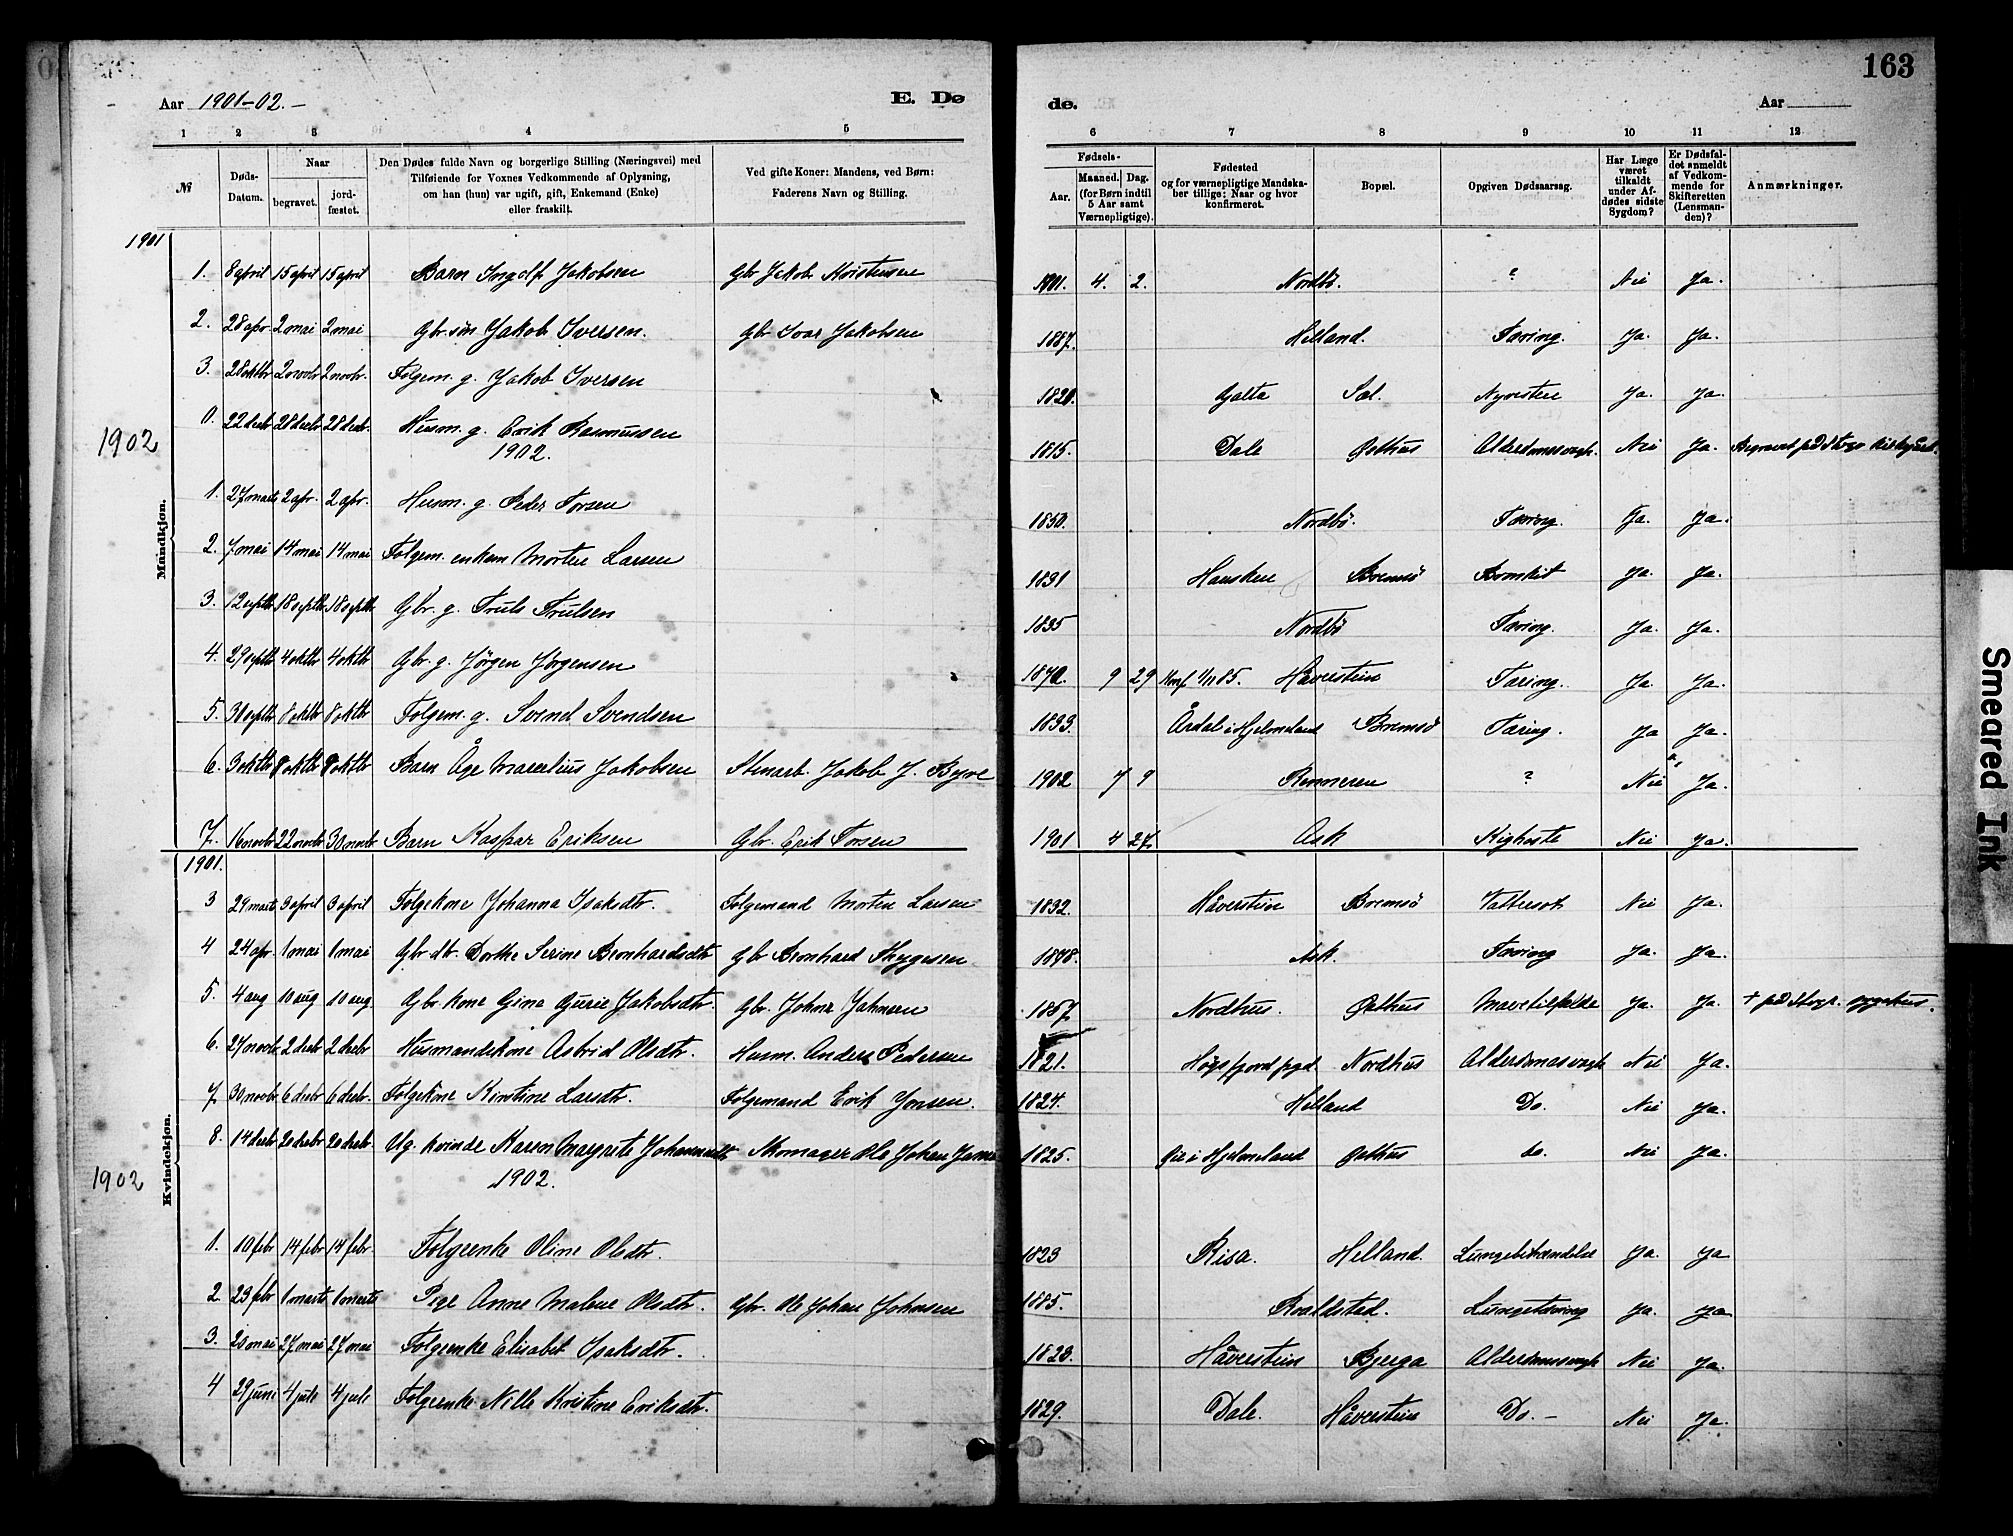 163
Aar 1901-02.-
E. Dø
de.
Aar
1 2 3 4 5 6 7 8 9 10 11 12
№
Døds-Datum.
Naar
begravet.
jord-fæstet.
Den Dødes fulde Navn og borgerlige Stilling (Næringsvei) med
Tilføiende for Voxnes Vedkommende af Oplysning,
om han (hun) var ugift, gift, Enkemand (Enke)
eller fraskilt.
Ved gifte Koner: Mandens, ved Børn:
Faderens Navn og Stilling.
Fødsels-
Aar.
Maaned. Dag.
(for Børn indtil
5 Aar samt
Værnepligtige).
Fødested
og for værnepligtige Mandska-
ber tillige: Naar og hvor
konfirmeret.
Bopæl.
Opgiven Dødsaarsag.
Har Læge
været
tilkaldt
under Af-
dødes sidste
Sygdom?
Er Dødsfal-
det anmeldt
af Vedkom-
mende for
Skifteretten
(Lensman-
den)?
Anmærkninger.
Mandkjøn.
1901
1. 8 april 15 april 15 april Barn Ingolf Jakobsen Gbr Jakob 1901. 4. 2. Nordbö. ? Nei Ja.
2. 28 apr. 2 mai 2 mai Gbr. sön Jakob Iversen. Gbr Ivar Jakobsen 1887. Helland. Tæring. Ja. Ja.
3. 28 oktbr 2 novbr 2 novbr. Folgem. g. Jakob Iversen 1820. Galta Sel. Nyresten Ja. Ja.
0. 22 decbr 28 decbr 28 decbr. Husm. g. Erik Rasmussen 1815. Dale Østhus Alderdomssvagh. Nei Ja. Begravet på
1902
1902.
1. 27 marts 2 apr. 2 apr. Husm. g. Peder Torsen 1850. Nordbö. Tæring. Ja. Ja.
2. 7 mai 14 mai 14 mai Folgem. enkem Morten Larsen 1831 Hausken Bremsö Bronkit Ja. Ja.
3. 12 septbr 18 septbr 18 septbr. Gbr. g. Truls Trulsen 1835 Nordbö Tæring. Ja. Ja.
4. 29 septbr 4 oktbr 4 oktbr Gbr. g. Jörgen Jörgensen 1870. 9 29 Konf. 1/11 85. Håverstein Tæring. Ja. Ja.
5. 30 septbr 8 oktbr 8 oktbr Folgem. g. Svend Svendsen 1833. Årdal i Hjelmeland Bremsö Tæring. Ja Ja.
6. 3 oktbr 8 oktbr 8 oktbr Barn Åge Marcelius Jakobsen Stenarb. Jakob J. Byre 1902 7 9 Rennesen ? Nei Ja.
7. 16 novbr 22 novbr 30 novbr Barn Kaspar Eriksen Gbr. Erik Torsen 1901 4 27 Ask Kighoste Nei Ja.
Kvindekjøn.
1901.
3 29 marts 3 april 3 april Folgekone Johanna Isaksdtr. Folgemand Morten Larsen 1832. Håverstein Bremsö Vattersot Nei Ja.
4 24 apr. 1 mai 1 mai Gbr dtr. Dorthe Serine Bernhardsdtr Gbr Bernhard Thygesen 1898. Ask. Tæring Ja. Ja.
5. 4 aug 10 aug 10 aug Gbr. kone Gina Gurie Jakobsdtr. Gbr. Johns Johnsen 1857 Nordhus. Østhus Mavetilfælde Ja. Ja. † på Stvgr. sygehus.
6. 27 novbr 2 decbr 2 decbr Husmandskone Astrid Olsdtr. Husm. Anders Pedersen 1821. Høgsfjord prgd Nordhus Alderdomssvagh Nei Ja.
7. 30 novbr 6 decbr 6 decbr. Folgekone Kirstine Larsdtr. Folgemand Erik Jonsen. 1824. Helland Do. Nei Ja.
8. 14 decbr 20 decbr 20 decbr Ug. kvinde Karen Margrete Johannesdtr Skomager Ole Johan 1825. i Hjelmeland Østhus do. Nei Ja.
1902
1902.
1. 10 febr 14 febr 14 febr. Folgeenke Oline Olsdtr. 1823 Risa. Helland. Lungebetændelse Ja. Ja
2. 23 febr 1 marts 1 marts Pige Anne Malene Olsdtr. Gbr. Ole Johan Johnsen 1885. Lungetæring Ja. Ja
3. 20 mai 27 mai 27 mai Folgeenke Elisabet Isaksdtr. 1828. Håverstein Bjerga Alderdomssvagh Nei Ja.
4 29 juni 4 juli 4 juli Folgeenke Nille Kristine Eriksdtr. 1829. Dale. Håverstein Do.- Nei Ja.
Smeared Ink